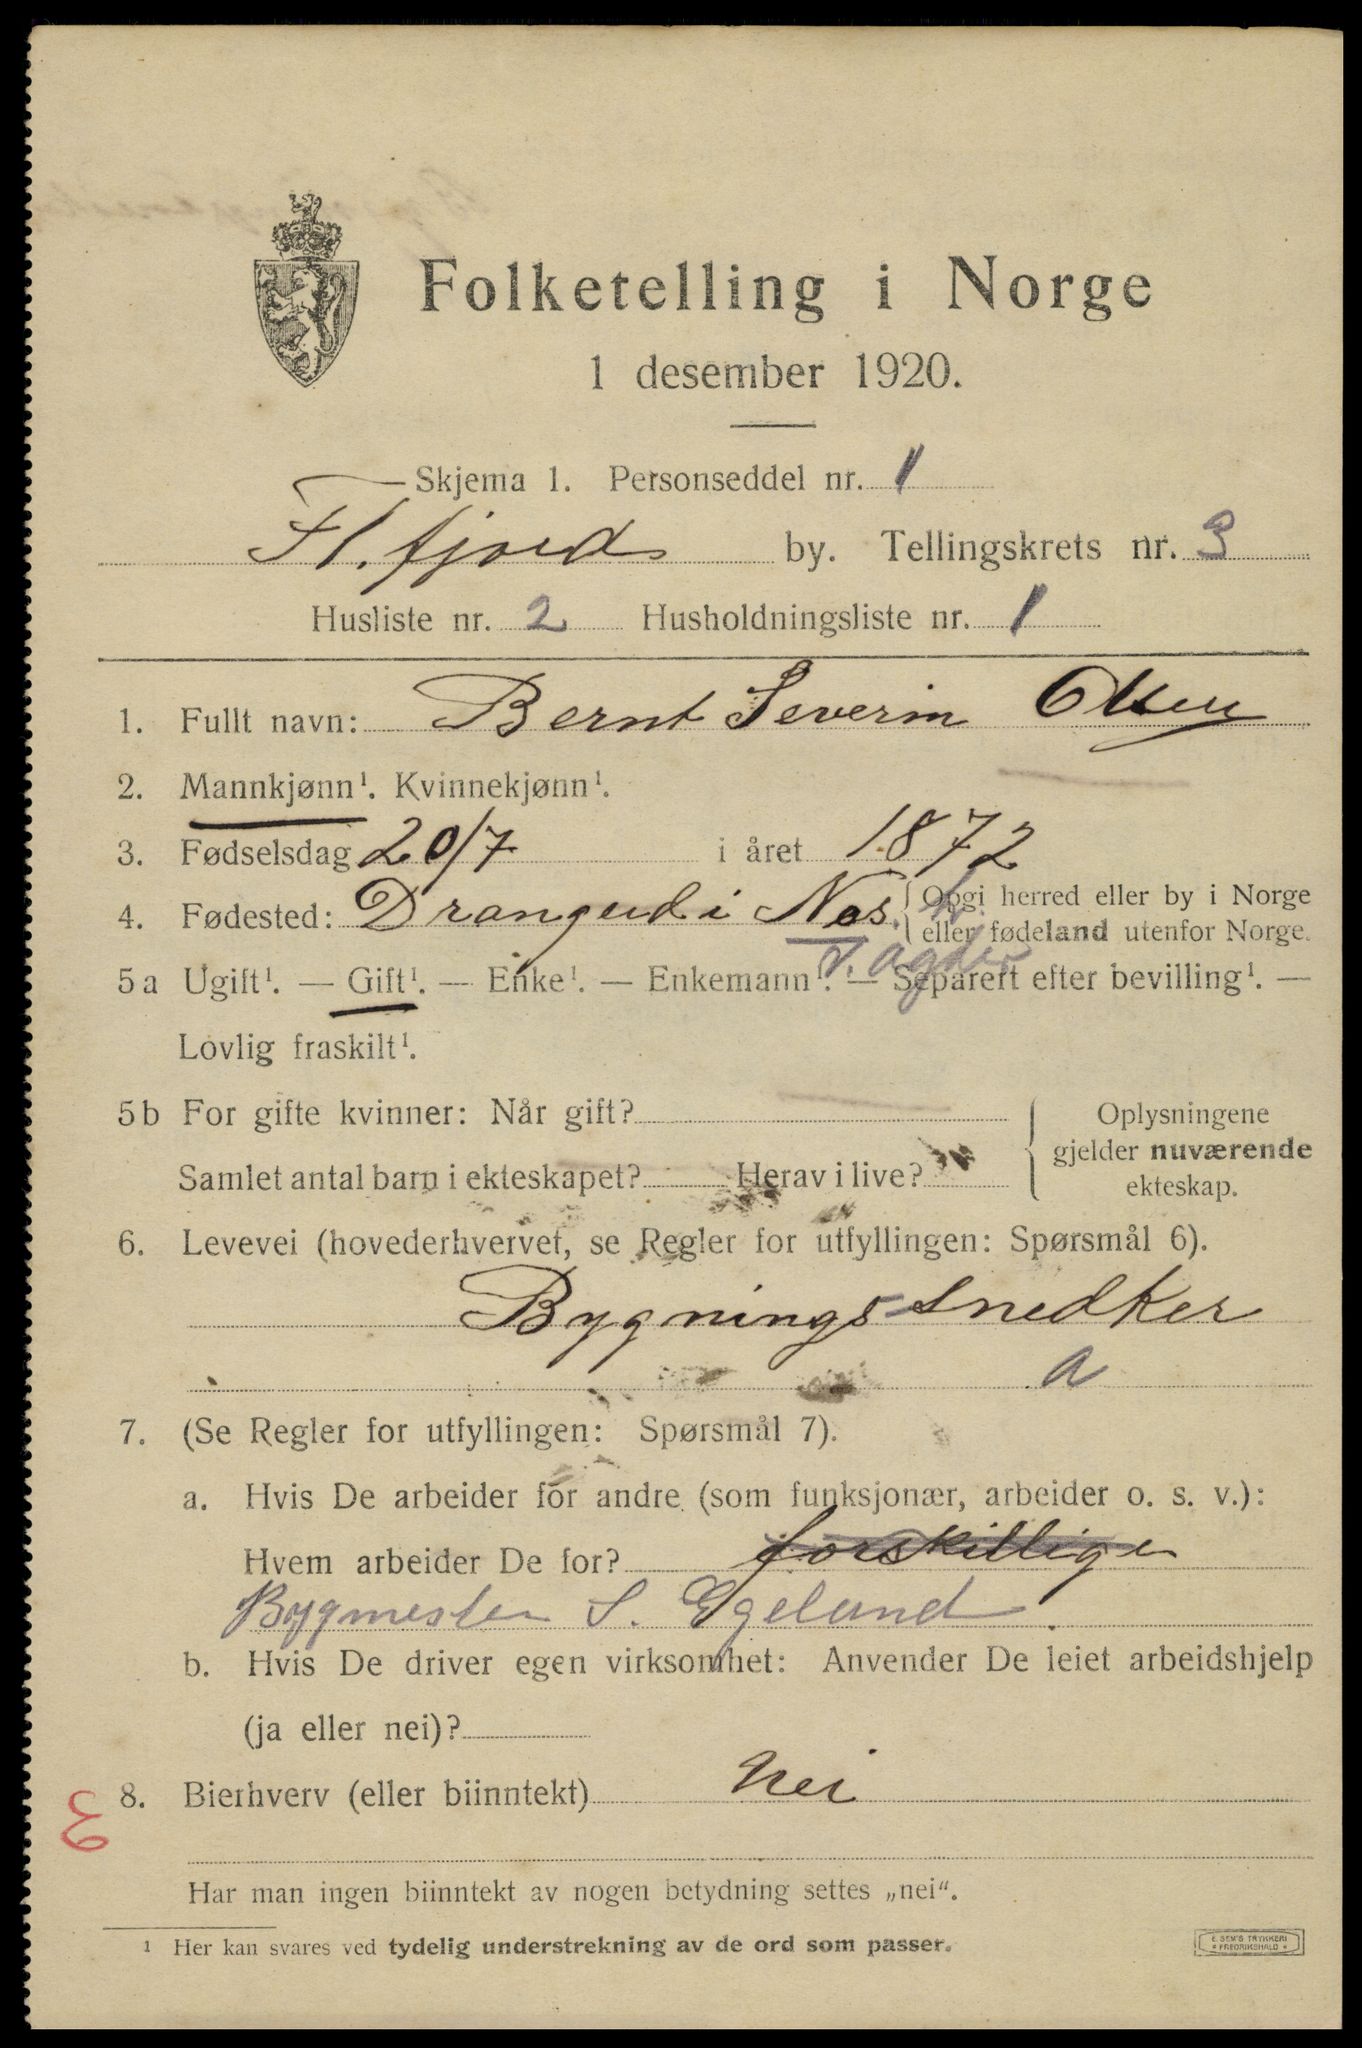 Folketelling i Norge
1 desember 1920.
Skjema 1. Personseddel nr. 1
Fl.fjord by. Tellingskrets nr. 3
Husliste nr. 2 Husholdningsliste nr. 1
1. Fullt navn: Bernt Severin Olsen
2. Mannkjønn¹. Kvinnekjønn¹.
3. Fødselsdag 20/7 i året 1872
4. Fødested: Drangeid i Nes. {Opgi herred eller by i Norge
eller fødeland utenfor Norge.
V. Agder
5 a Ugift¹. — Gift¹. — Enke¹. — Enkemann¹. — Separert efter bevilling¹. —
Lovlig fraskilt¹.
5 b For gifte kvinner: Når gift?
Samlet antal barn i ekteskapet? Herav i live?
{Oplysningene
gjelder nuværende
ekteskap.
6. Levevei (hovederhvervet, se Regler for utfyllingen: Spørsmål 6).
Bygningssnedker
a
7. (Se Regler for utfyllingen: Spørsmål 7).
a. Hvis De arbeider for andre (som funksjonær, arbeider o. s. v.):
Hvem arbeider De for? forskillige
Bygmester S. Egeland
b. Hvis De driver egen virksomhet: Anvender De leiet arbeidshjelp
(ja eller nei)?
8. Bierhverv (eller biinntekt) Nei
Har man ingen biinntekt av nogen betydning settes „nei“.
¹ Her kan svares ved tydelig understrekning av de ord som passer.
E. SEM'S TRYKKERI
* FREDRIKSHALD *